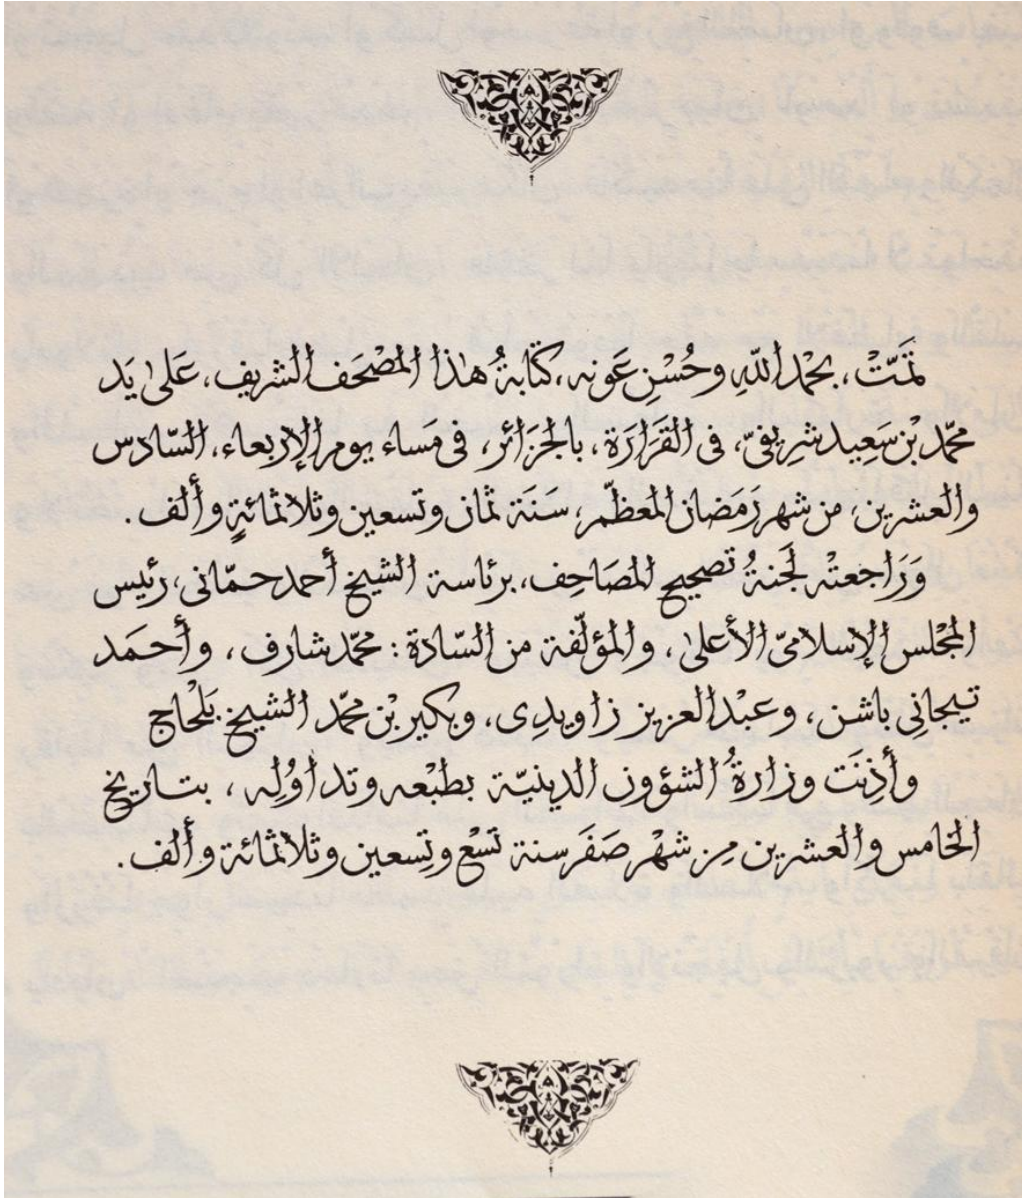 تَمَّتْ، بحمْدِ اللّهِ وحُسْنِ عَونه، كتَابةُ هٰذا المُصْحَف الشريف، عَلىٰ يَد
محمّد بْن سَعِيد شرِيفيّ، فى القَرَارَة، بالجزَائر، فى مَساء يوم الإربعاء، السّادس
والعشرين، من شهر رَمَضان المعظّم، سَنَة ثمان وتسعين وثلاثمائةٍ وألف.
وَرَاجعتْه لَجنةُ تصحيح المصَاحِف، برئاسة الشيخ أحمد حمّانى، رئيس
المجْلس الإسلامىّ الأعلىٰ، والمؤلّفة من السّادة: محمّد شارف، وأحمَد
تيجانِي باشن، وعبْد العزيز زاويدِى، وبكير بْن محمّد الشيخ بَلْحاج
وأذِنَت وزارةُ الشؤون الدينيّة بطبْعه وتداوُلِه، بتاريخ
الخامس والعشرين مِن شهْر صَفَر سنة تسْع وتِسعين وثلاثمائة وألف.